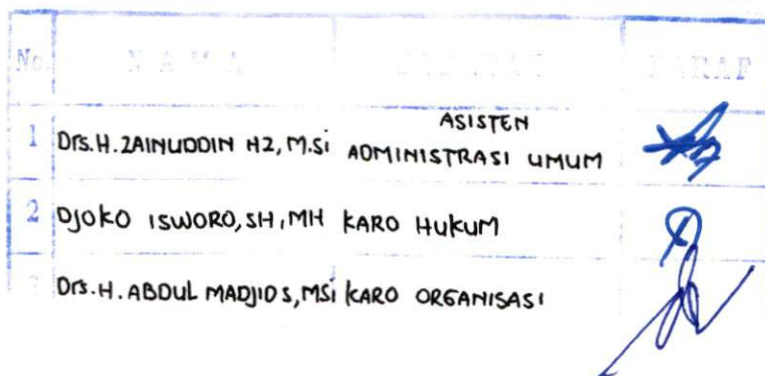 No. N A M A JABATAN PARAF
1 Drs.H. ZAINUDDIN HZ, M.Si ASISTEN ADMINISTRASI UMUM
2 DJOKO ISWORO, SH, MH KARO HUKUM
3 Drs.H. ABDUL MADJID S, MSi KARO ORGANISASI